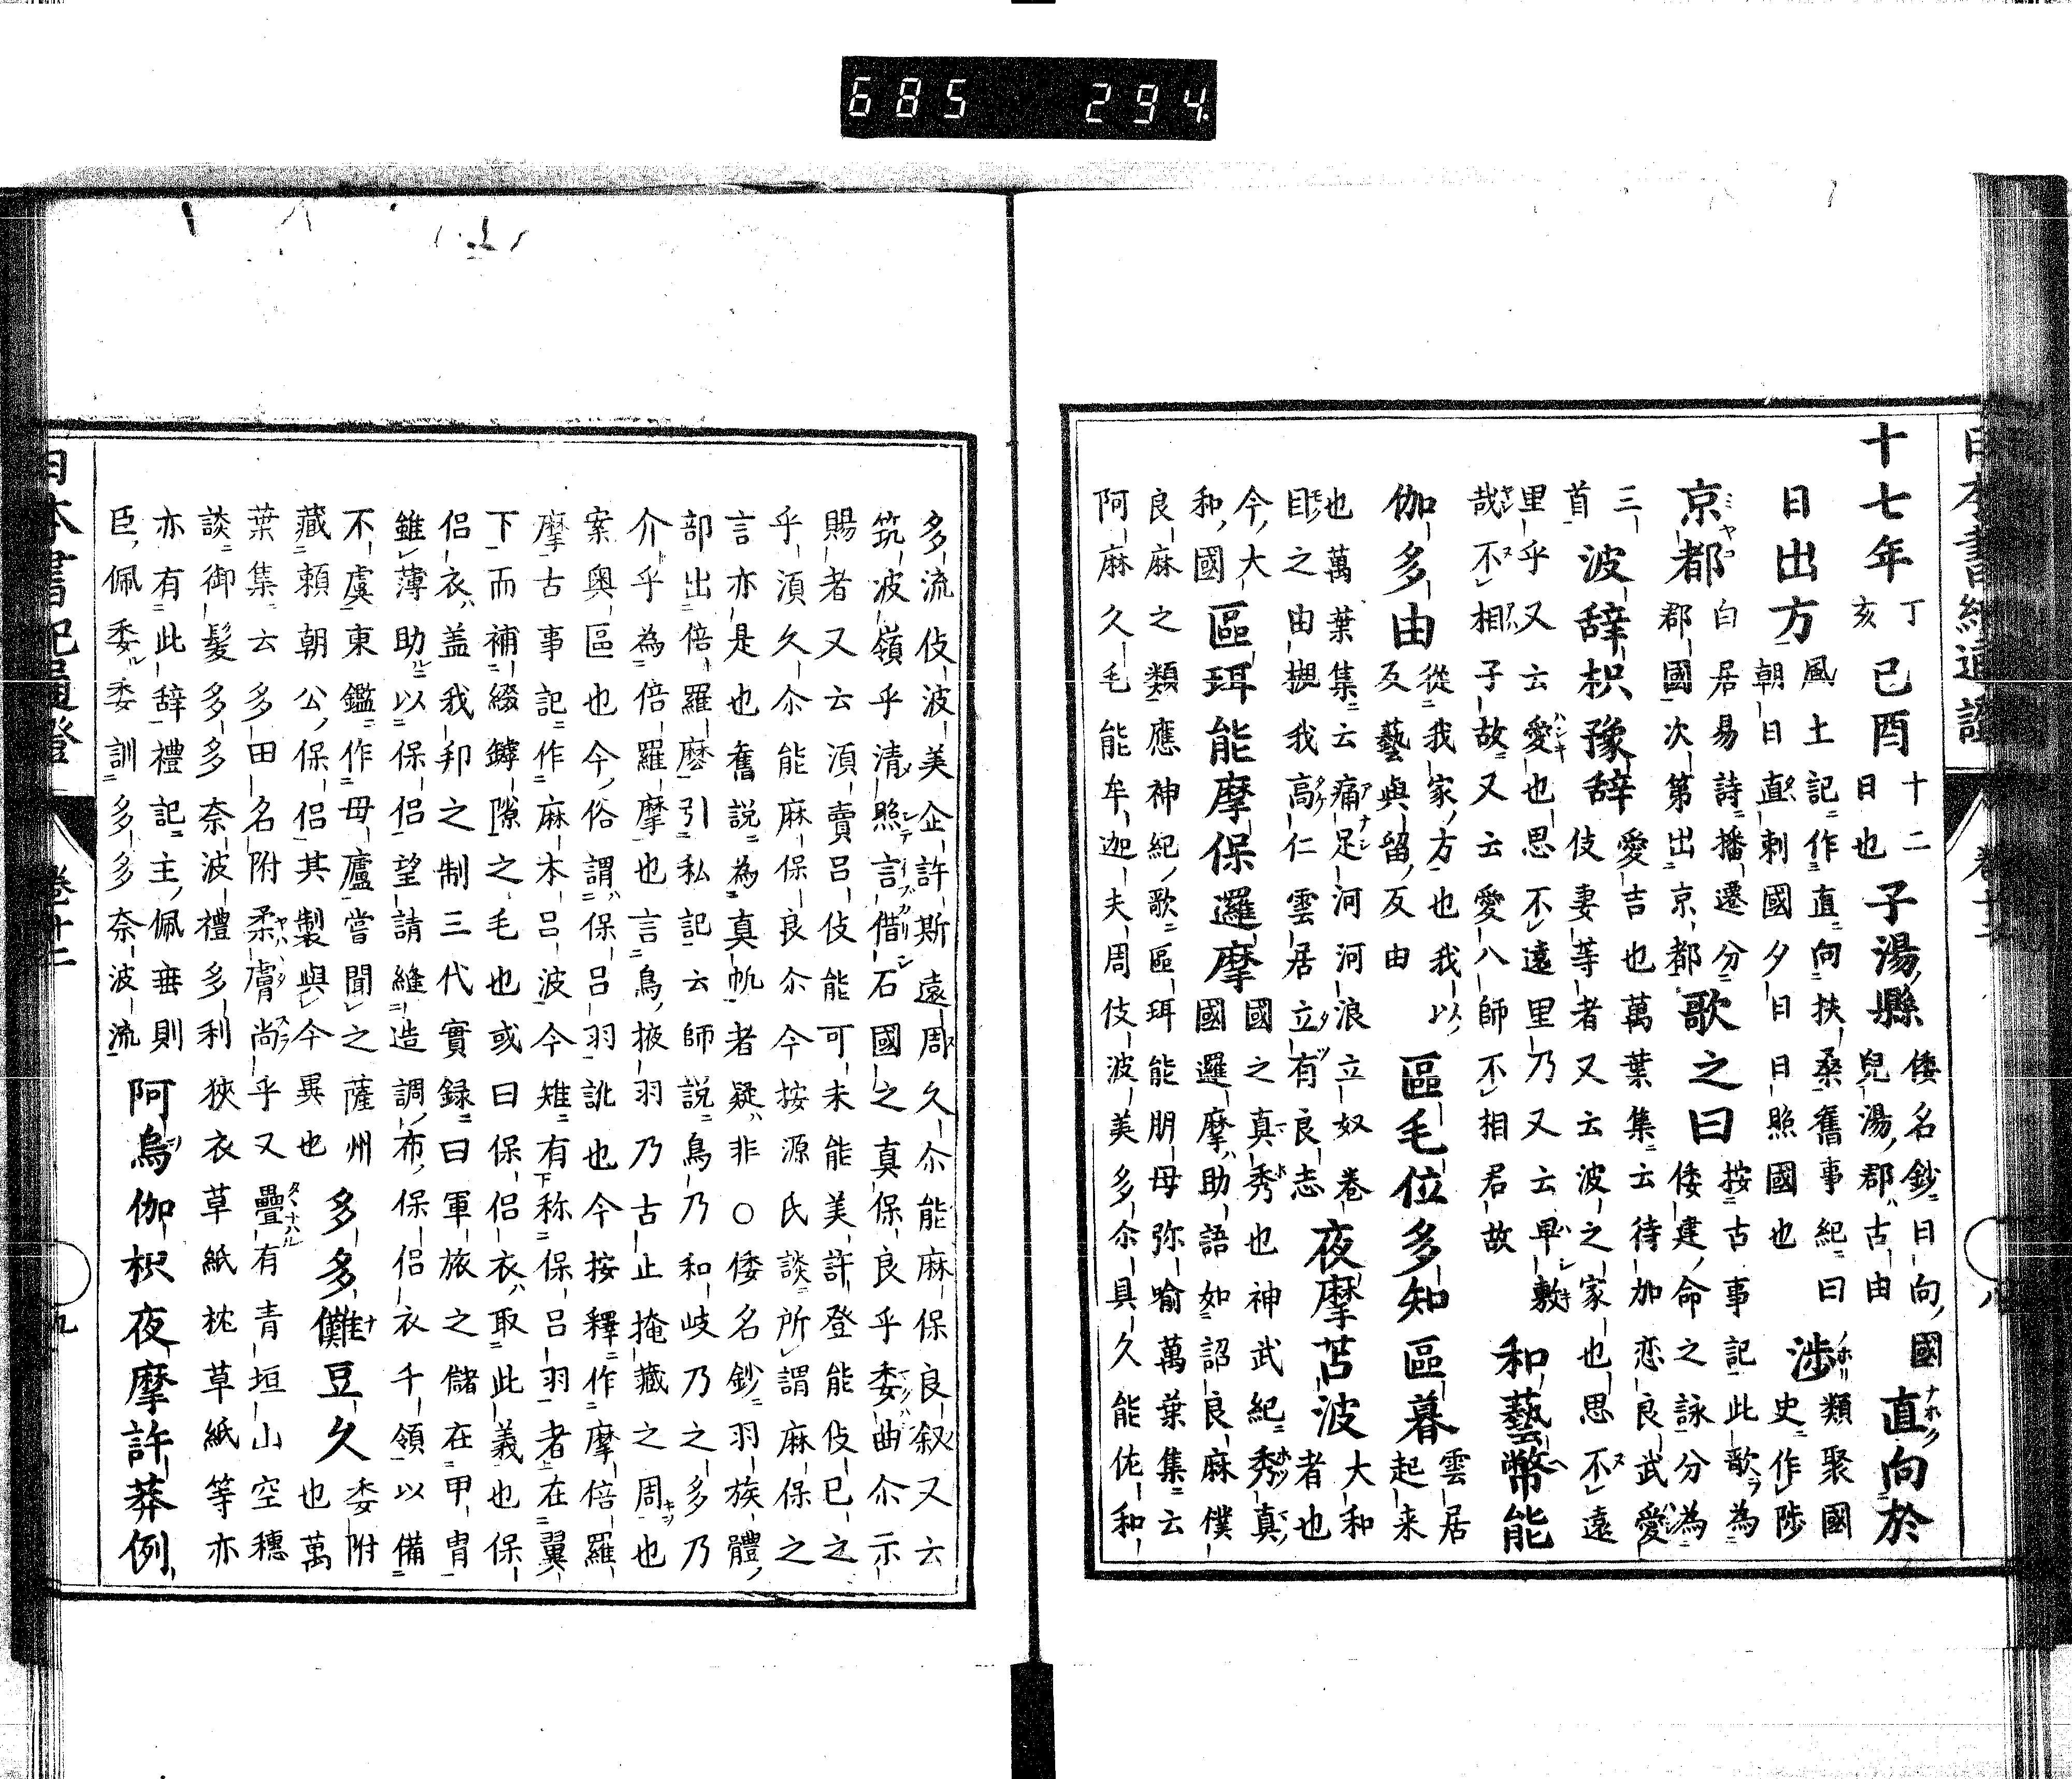 685 294
十七年
丁
亥
己酉
十二
日也
子湯縣
倭名鈔日向國
兒湯郡古由
直向於
日出方
風土記作直向扶桑舊事紀曰
朝日直刺國夕日日照國也
渉
類聚國
史作陟
京都
白居易詩播遷分
郡國次第出京都
歌之曰
按古事記此歌為
倭建命之詠分為
三
首
波辞枳豫辞
愛吉也萬葉集云待加恋良武愛
伎妻等者又云波之家也思不遠
里乎又云愛也思不遠里乃又云早敷
哉不相子故又云愛八師不相君故
和藝幣能
伽多由
從我家方也我以
反藝與留反由
區毛位多知區暮
雲居
起来
也萬葉集云痛足河河浪立奴卷
目之由槻我高仁雲居立有良志
夜摩苫波
大和
者也
今大
和國
區珥能摩保邏摩
國之真秀也神武紀秀真
國邏摩助語如詔良麻僕
良麻之類應神紀歌區珥能朋母弥喻萬葉集云
阿麻久毛能牟迦夫周伎波美多尓具久能佐和
多流伎波美企許斯遠周久尓能麻保良叙又云
筑波嶺乎清照言借石國之真保良乎委曲尓示
賜者又云湏賣呂伎能可未能美許登能伎已之
乎湏久尓能麻保良尓今按源氏談所謂麻保之
言亦是也舊説為真帆者疑非○倭名鈔羽族體
部出倍羅麽引私記云師説鳥乃和岐乃之多乃
介乎為倍羅摩也言鳥掖羽乃古止掩藏之周也
案奥區也今俗謂保呂羽訛也今按釋作摩倍羅
摩古事記作麻本呂波今雉有称保呂羽者在翼
下而補綴罅隙之毛也或曰保侶衣取此義也保
侶衣盖我邦之制三代實録曰軍旅之儲在甲冑
雖薄助以保侶望請縫造調布保侶衣千領以備
不虞東鑑作母廬嘗聞之薩州
藏頼朝公保侶其製與今異也
多多儺豆久
委附
也萬
葉集云多田名附柔膚尚乎又疊有青垣山空穗
談御髪多多奈波禮多利狹衣草紙枕草紙等亦
亦有此辞禮記主佩垂則
臣佩委委訓多多奈波流
阿烏伽枳夜摩許莽例
日本書紀通證 卷十二 九